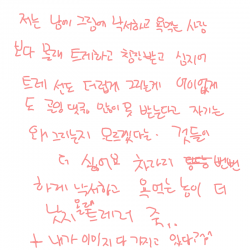 저는 남에 그림에 낙서하고 욕먹는 사람
보다 몰래 트레하고 칭찬받고 심지어
트레 선도 더럽게 그리는게 어이없게
도 운영 댓글 많이 못 받는다고 자기는
왜 그러는지 모르겠다는. 것들이
더 싫어요 차라리 번번
하게 낙서하고 욕먹는 놈이 더
낫지 몰래 트레러 죽..
+ 내가 이미지 다 가지고 있다